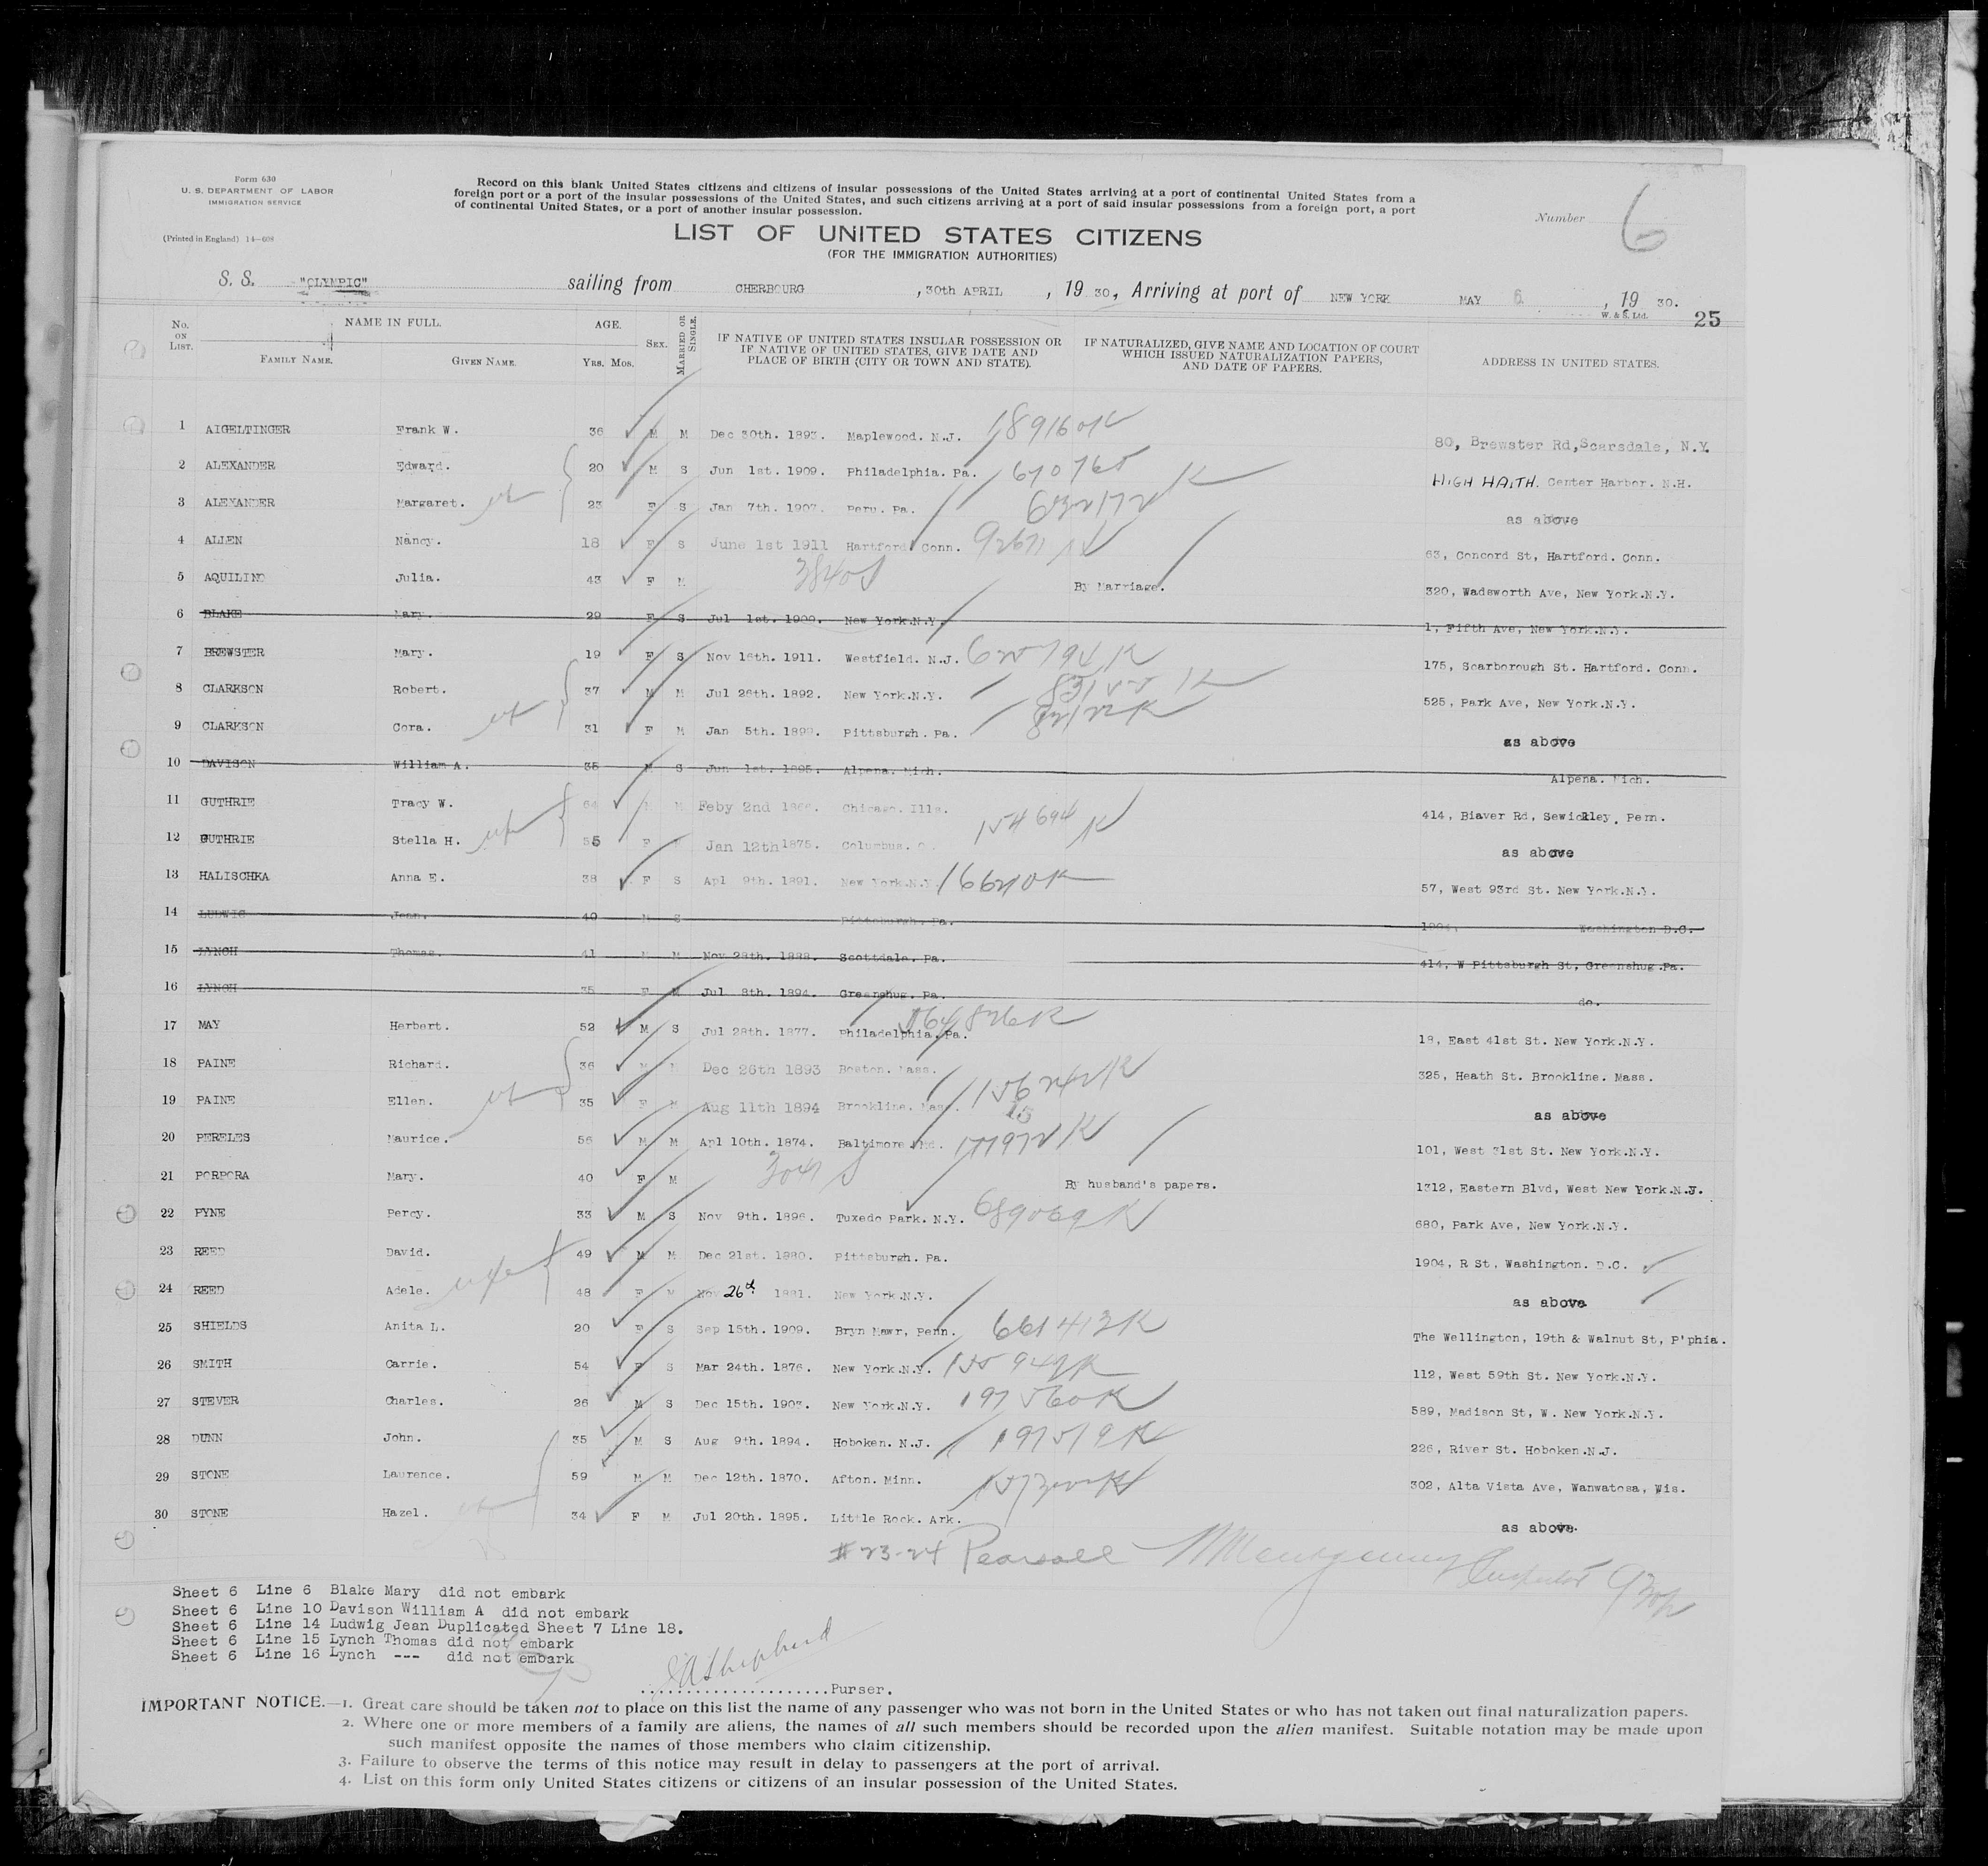 Form 630
U. S. DEPARTMENT OF LABOR
IMMIGRATION SERVICE
(Printed in England) 14—608
Record on this blank United States citizens and citizens of insular possessions of the United States arriving at a port of continental United States from a
foreign port or a port of the insular possessions of the United States, and such citizens arriving at a port of said insular possessions from a foreign port, a port
of continental United States, or a port of another insular possession.
Number 6
LIST OF UNITED STATES CITIZENS
(FOR THE IMMIGRATION AUTHORITIES)
S. S. "OLYMPIC" sailing from CHERBOURG, 30th APRIL, 1930, Arriving at port of NEW YORK MAY 6, 1930.
W. & S. Ltd. 25
No. ON LIST. NAME IN FULL. FAMILY NAME. GIVEN NAME. AGE. YRS. MOS. SEX. MARRIED OR SINGLE. IF NATIVE OF UNITED STATES INSULAR POSSESSION OR IF NATIVE OF UNITED STATES, GIVE DATE AND PLACE OF BIRTH (CITY OR TOWN AND STATE). IF NATURALIZED, GIVE NAME AND LOCATION OF COURT WHICH ISSUED NATURALIZATION PAPERS, AND DATE OF PAPERS. ADDRESS IN UNITED STATES.
1 AIGELTINGER Frank W. 36 M M Dec 30th. 1893. Maplewood. N.J. 80, Brewster Rd, Scarsdale, N.Y.
2 ALEXANDER Edward. 20 M S Jun 1st. 1909. Philadelphia. Pa. HIGH HAITH. Center Harbor. N.H.
3 ALEXANDER Margaret. 23 F S Jan 7th. 1907. Peru. Pa. as above
4 ALLEN Nancy. 18 F S June 1st 1911 Hartford Conn. 63, Concord St, Hartford. Conn.
5 AQUILINO Julia. 43 F M By Marriage. 320, Wadsworth Ave, New York.N.Y.
6 BLAKE Mary. 29 F S Jul 1st. 1900. New York.N.Y. 1, Fifth Ave, New York.N.Y.
7 BREWSTER Mary. 19 F S Nov 16th. 1911. Westfield. N.J. 175, Scarborough St. Hartford. Conn.
8 CLARKSON Robert. 37 M M Jul 26th. 1892. New York.N.Y. 525, Park Ave, New York.N.Y.
9 CLARKSON Cora. 31 F M Jan 5th. 1899. Pittsburgh. Pa. as above
10 DAVISON William A. 35 M S Jun 1st. 1895. Alpena. Mich. Alpena. Mich.
11 GUTHRIE Tracy W. 64 M M Feby 2nd Chicago. Ills. 414, Biaver Rd, Sewickley, Penn.
12 GUTHRIE Stella H. 55 F Jan 12th 1875. Columbus. O. 154694 K as above
13 HALISCHKA Anna E. 38 F S Apl 9th. 1891. New York.N.Y. 57, West 93rd St. New York.N.Y.
14 LUDWIG Jean. 40 M S Pittsburgh. Pa. 1904, Washington D.C.
15 LYNCH Thomas. 41 M M Nov 28th. 1888. Scottdale. Pa. 414, W Pittsburgh St, Greenshug.Pa.
16 LYNCH 35 F M Jul 8th. 1894. Greenshug. Pa. do.
17 MAY Herbert. 52 M S Jul 28th. 1877. Philadelphia. Pa. 18, East 41st St. New York.N.Y.
18 PAINE Richard. 36 M M Dec 26th 1893 Boston. Mass. 325, Heath St. Brookline. Mass.
19 PAINE Ellen. 35 F M Aug 11th 1894 Brookline. Mass. as above
20 PERELES Maurice. 56 M M Apl 10th. 1874. Baltimore Md. 101, West 31st St. New York.N.Y.
21 PORPORA Mary. 40 F M By husband's papers. 1312, Eastern Blvd, West New York.N.J.
22 PYNE Percy. 33 M S Nov 9th. 1896. Tuxedo Park. N.Y. 689069 K 680, Park Ave, New York.N.Y.
23 REED David. 49 M M Dec 21st. 1880. Pittsburgh. Pa. 1904, R St, Washington. D.C.
24 REED Adele. 48 F M Nov 26th 1881. New York.N.Y. as above
25 SHIELDS Anita L. 20 F S Sep 15th. 1909. Bryn Mawr, Penn. 661413K The Wellington, 19th & Walnut St, P'phia.
26 SMITH Carrie. 54 F S Mar 24th. 1876. New York.N.Y. 112, West 59th St. New York.N.Y.
27 STEVER Charles. 26 M S Dec 15th. 1903. New York.N.Y. 197560K 589, Madison St, W. New York.N.Y.
28 DUNN John. 35 M S Aug 9th. 1894. Hoboken. N.J. 197519K 226, River St. Hoboken.N.J.
29 STONE Laurence. 59 M M Dec 12th. 1870. Afton. Minn. 302, Alta Vista Ave, Wanwatosa, Wis.
30 STONE Hazel. 34 F M Jul 20th. 1895. Little Rock. Ark. as above.
# 23-24 Pearsall Montgomery Inspector
Sheet 6 Line 6 Blake Mary did not embark
Sheet 6 Line 10 Davison William A did not embark
Sheet 6 Line 14 Ludwig Jean Duplicated Sheet 7 Line 18.
Sheet 6 Line 15 Lynch Thomas did not embark
Sheet 6 Line 16 Lynch --- did not embark
Shepherd
Purser.
IMPORTANT NOTICE.—1. Great care should be taken not to place on this list the name of any passenger who was not born in the United States or who has not taken out final naturalization papers.
2. Where one or more members of a family are aliens, the names of all such members should be recorded upon the alien manifest. Suitable notation may be made upon
such manifest opposite the names of those members who claim citizenship.
3. Failure to observe the terms of this notice may result in delay to passengers at the port of arrival.
4. List on this form only United States citizens or citizens of an insular possession of the United States.